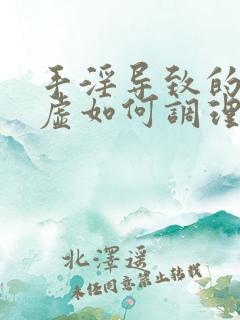 手淫导致的
虚如何調理
北澤遥
未经同意禁止转载